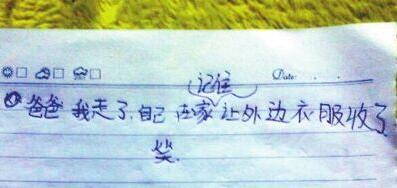 记住
Date:
爸爸 我走了.自己在家让外边衣服收了
笑.